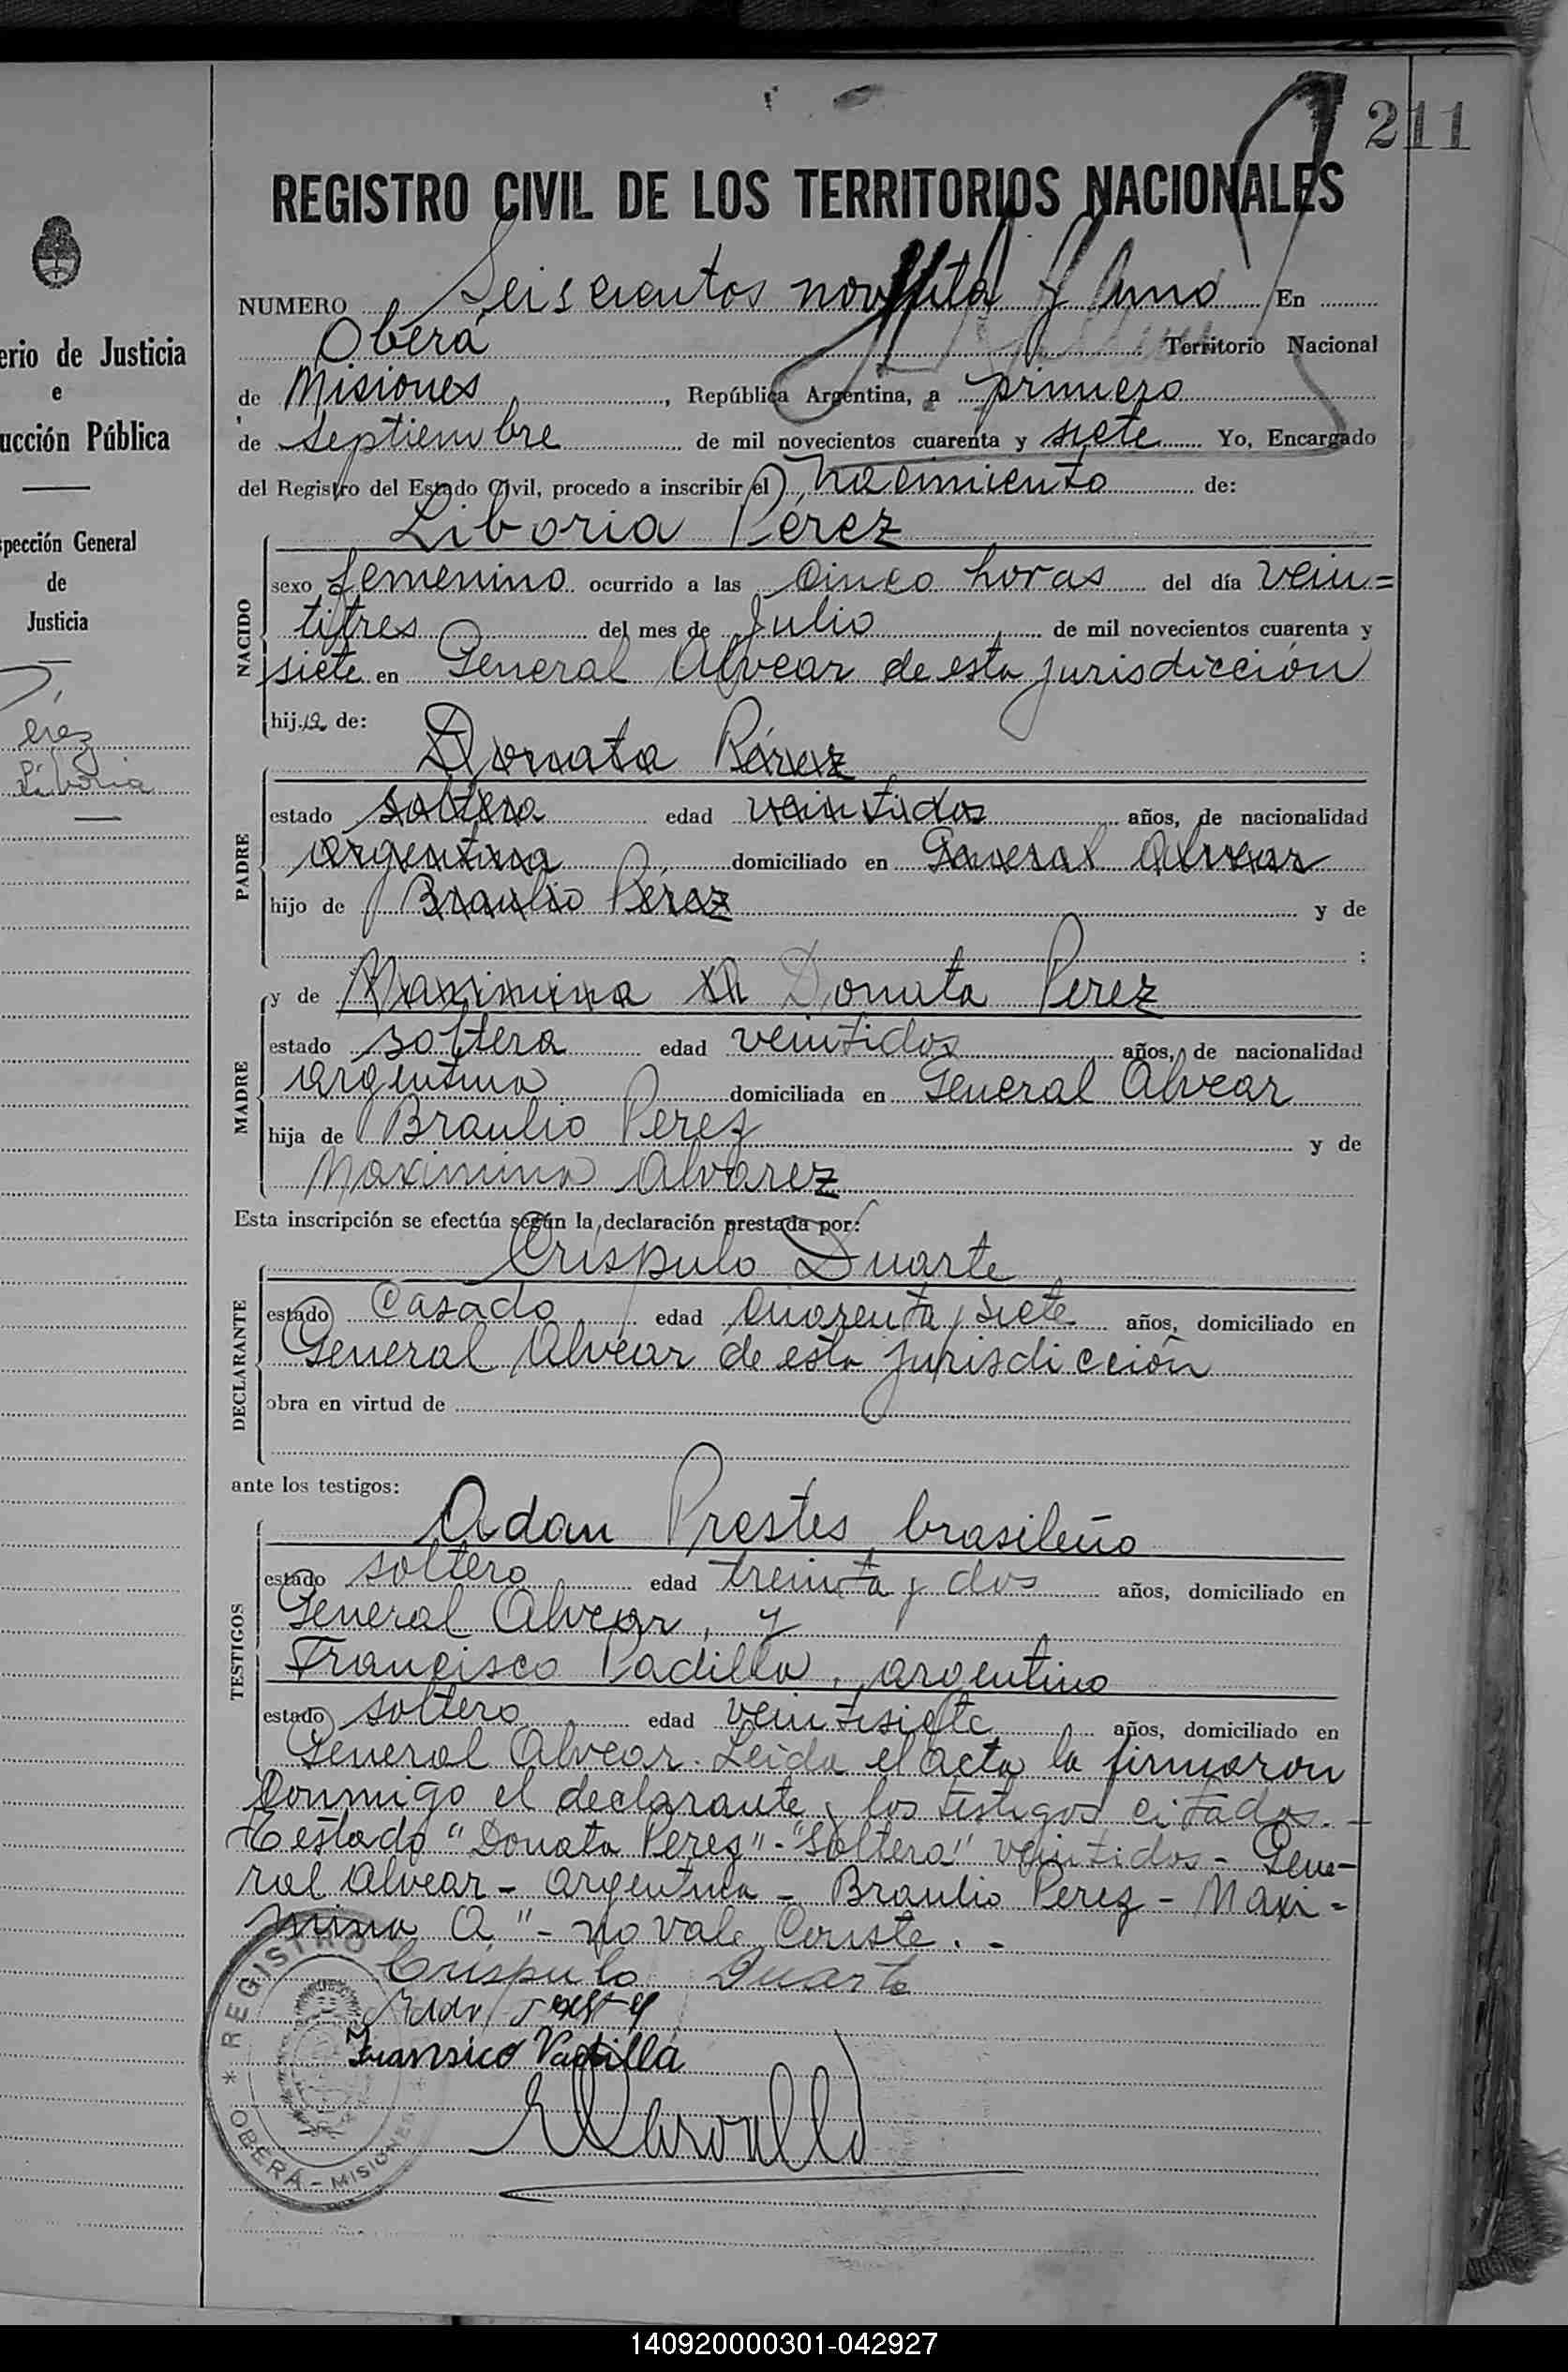 211
REGISTRO CIVIL DE LOS TERRITORIOS NACIONALES
NUMERO Seiscientos noventa y uno En
Oberá Territorio Nacional
de Misiones, República Argentina, a primero
de septiembre de mil novecientos cuarenta y siete Yo, Encargado
del Registro del Estado Civil, procedo a inscribir el nacimiento de:
Liboria Pérez
NACIDO
sexo femenino ocurrido a las cinco horas del día vein=
titres del mes de Julio de mil novecientos cuarenta y
siete en General Alvear de esta jurisdicción
hija de:
Donata Pérez
PADRE
estado soltera edad veintidos años, de nacionalidad
argentina domiciliado en General Alvear
hijo de Braulio Pérez y de
:
y de Maximina A Donata Perez
MADRE
estado soltera edad veintidos años, de nacionalidad
argentina domiciliada en General Alvear
hija de Braulio Perez y de
Maximina Alvarez
Esta inscripción se efectúa según la declaración prestada por:
Crispulo Duarte
DECLARANTE
estado Casado edad cuarenta y siete años, domiciliado en
General Alvear de esta jurisdicción
obra en virtud de
ante los testigos:
Adan Prestes brasileño
TESTIGOS
estado soltero edad treinta y dos años, domiciliado en
General Alvear, y
Francisco Padilla, argentino
estado soltero edad veintisiete años, domiciliado en
General Alvear. Leída el acta la firmaron
conmigo el declarante y los testigos citados.-
Testado "Donata Perez"-"Soltera" veintidos - Gene-
ral Alvear - argentina - Braulio Perez - Maxi=
mina A" - no vale Conste.-
Crispulo Duarte
Fransico Vadilla
REGISTRO
* OBERÁ - MISIONES *
erio de Justicia
e
ucción Pública
spección General
de
Justicia
érez
Liboria
140920000301-042927